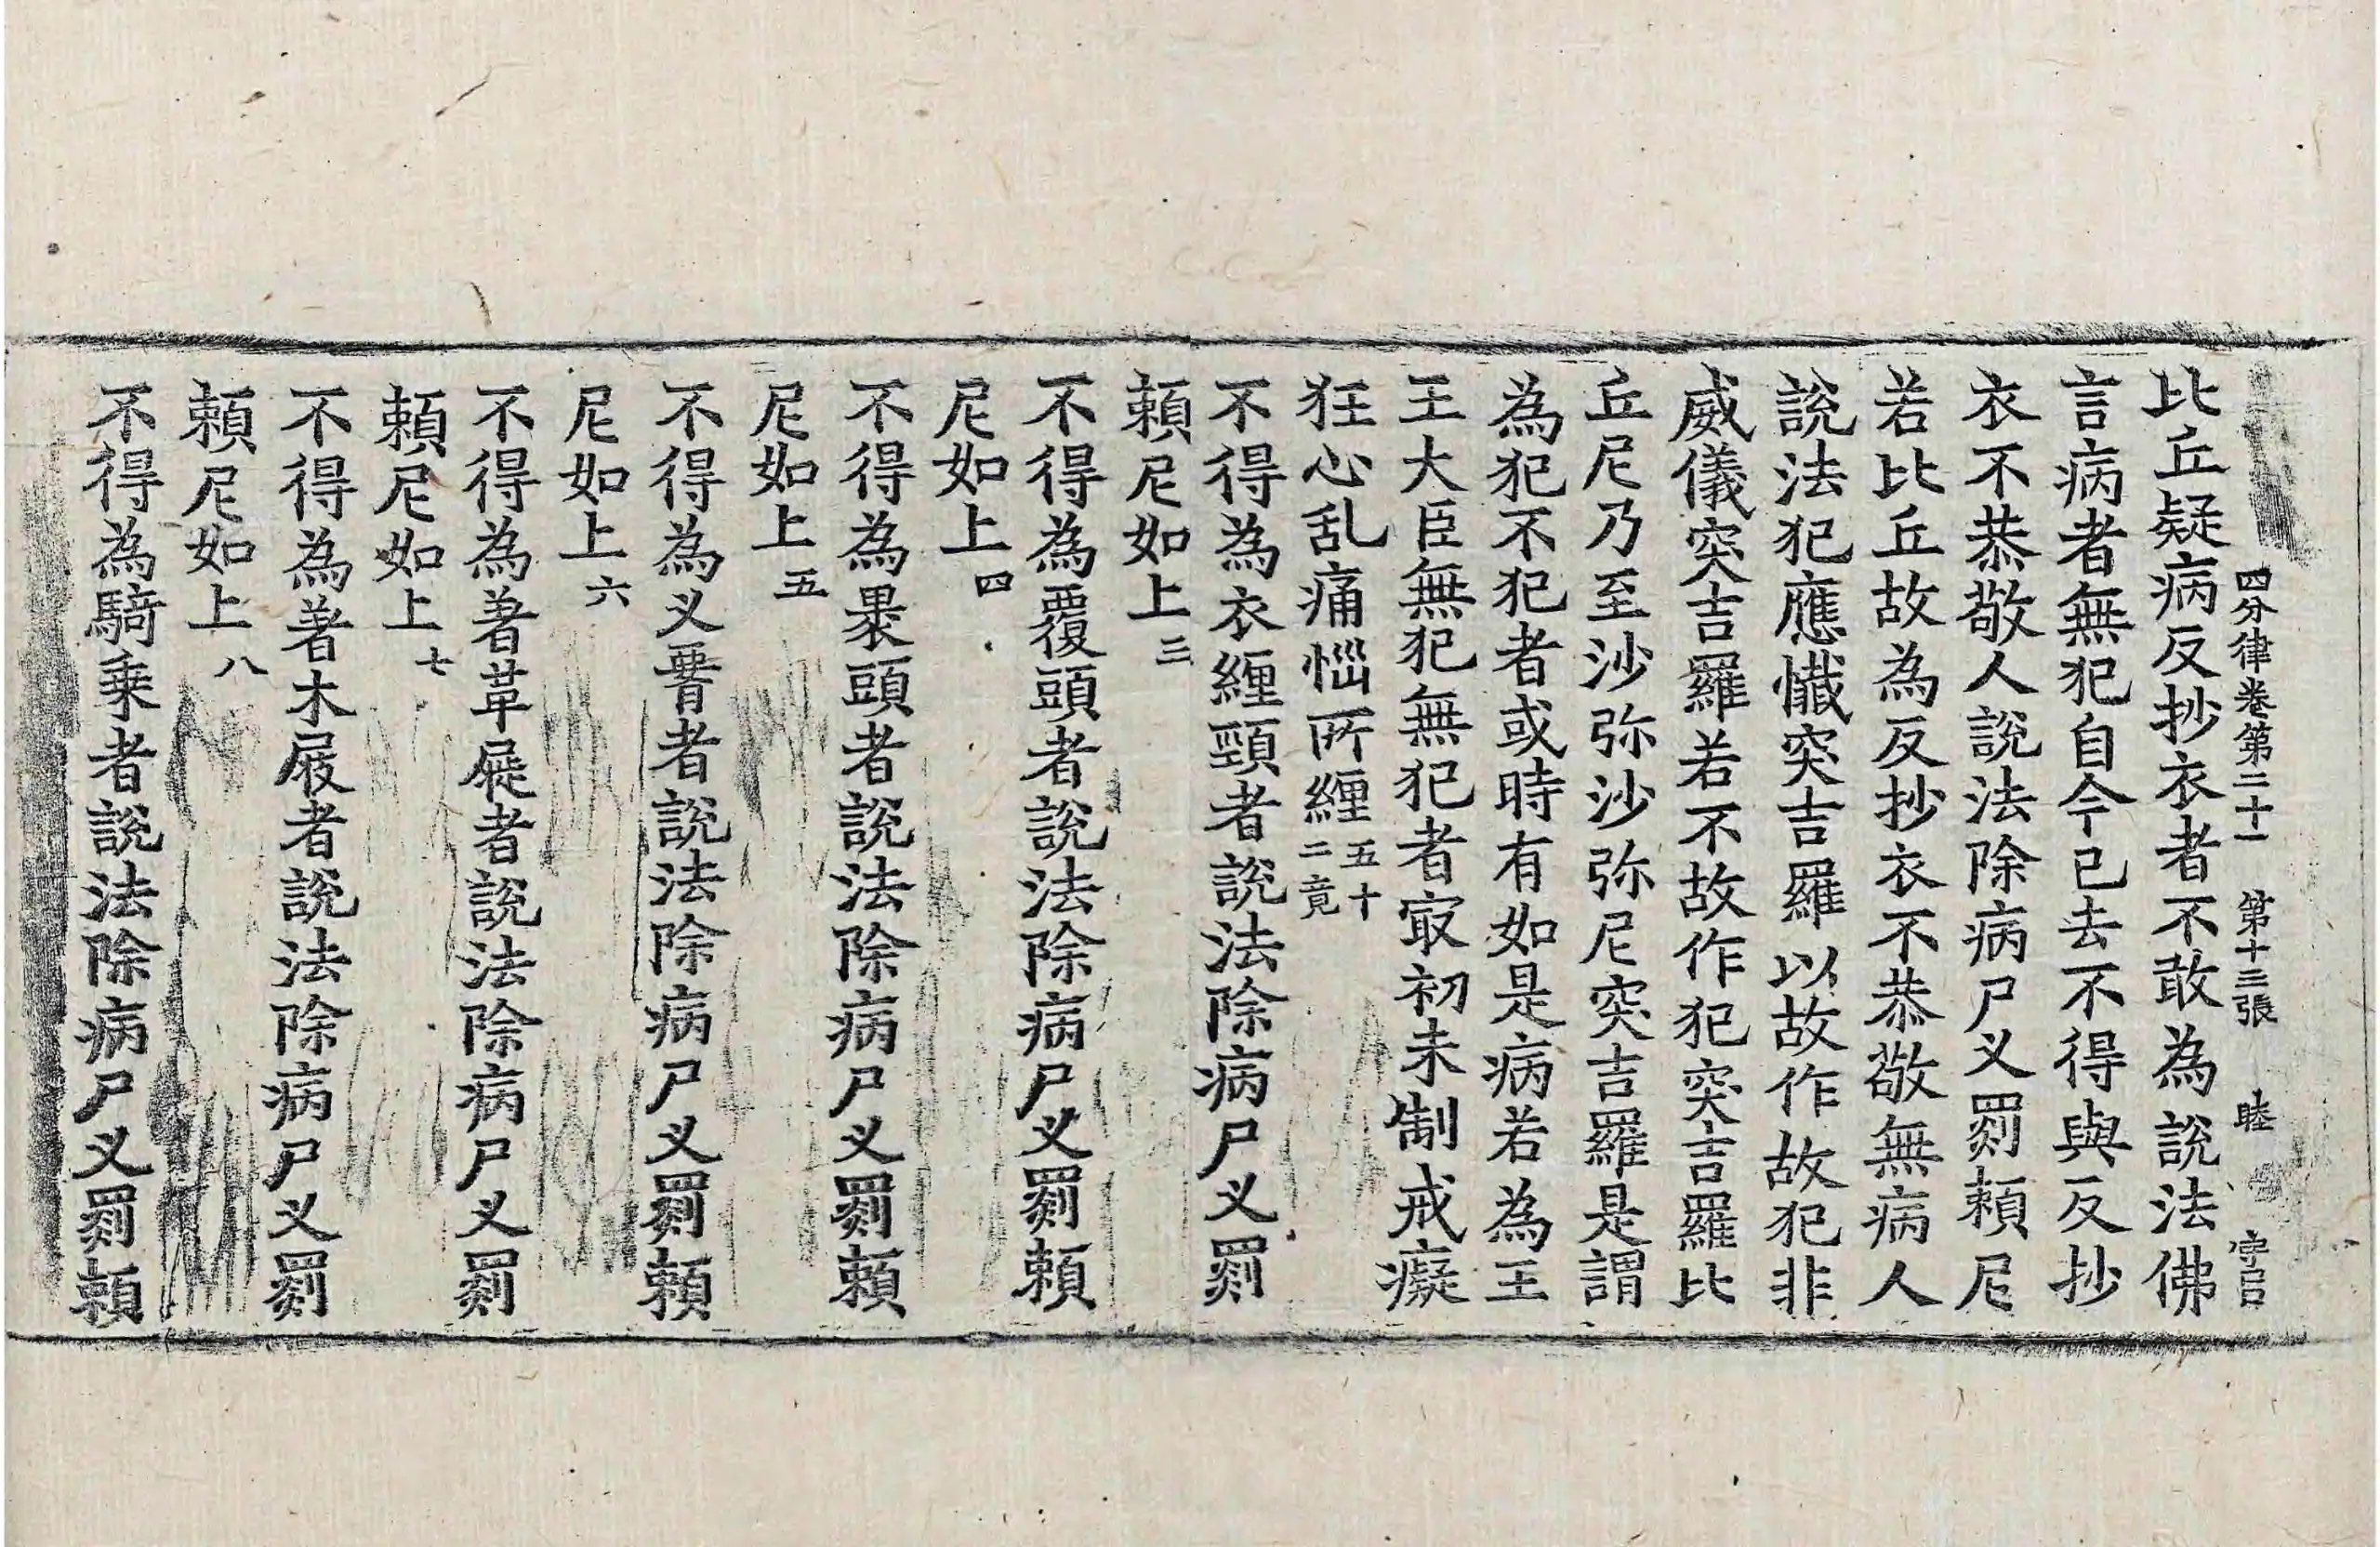 四分律卷第二十一　第十三張　睦
比丘疑病反抄衣者不敢為說法佛
言病者無犯自今已去不得與反抄
衣不恭敬人說法除病尸叉罽賴尼
若比丘故為反抄衣不恭敬無病人
說法犯應懺突吉羅以故作故犯非
威儀突吉羅若不故作犯突吉羅比
丘尼乃至沙弥沙弥尼突吉羅是謂
為犯不犯者或時有如是病若為王
王大臣無犯無犯者㝡初未制戒癡
狂心乱痛惱所纏五十二竟
不得為衣纏頸者說法除病尸叉罽
賴尼如上三
不得為覆頭者說法除病尸叉罽賴
尼如上四
不得為裹頭者說法除病尸叉罽賴
尼如上五
不得為叉𦝫者說法除病尸叉罽賴
尼如上六
不得為著革屣者說法除病尸叉罽
賴尼如上七
不得為著木屐者說法除病尸叉罽
賴尼如上八
不得為騎乗者說法除病尸叉罽賴